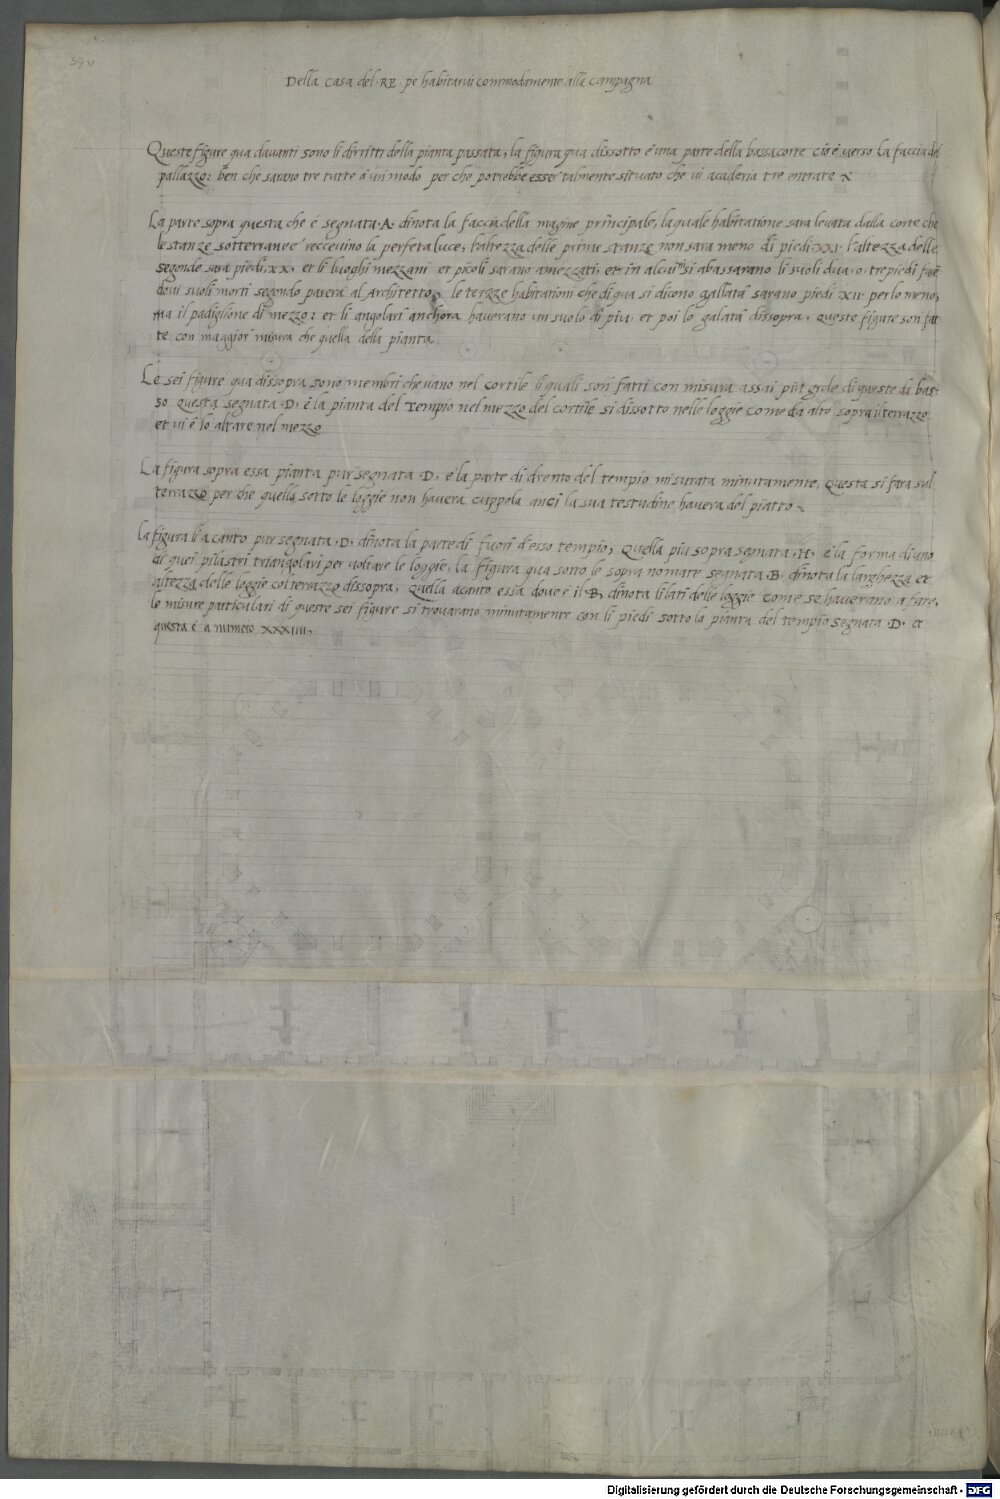 39v
Della Casa del · RE · pe habitarui commodamente alla campagna
Queste figure qua dauanti sono li diritti della pianta passata, la figura qua dissotto è una parte della bassacorte cio è uerso la faccia del
pallazzo: ben che sarano tre tutte a un modo per che potrebbe esser talmente situato che ui accaderia tre entrate
La parte sopra questa che è segnata · A · dinota la faccia della magine principale, la quale habitatione sara leuata dalla corte che
le stanze sotterranee receuino la perfeta luce, l'altezza delle prime stanze non sara meno di piedi · XXI · l'altezza delle
segonde sara piedi · XX · et li luoghi mezzani et picoli sarano amezzati, et in alcuni si abassarano li suoli dua · o · tre piedi
doui suoli morti segondo parera al Architetto, le terzze habitationi che di qua si dicono gallata sarano piedi XII per lo meno,
ma il padiglione di mezzo: et li angolari anchora hauerano un suolo di piu et poi lo galata dissopra, queste figure son fat
te con maggior misura che quella della pianta
Le sei figure qua dissopra sono membri che uano nel cortile li quali son fatti con misura assai piu grde di queste da bas-
so questa segnata · D · è la pianta del Tempio nel mezzo del cortile si dissotto nelle loggie come da alto sopra il terrazzo
et ui è lo altare nel mezzo
La figura sopra essa pianta pur segnata D · e la parte di drento del tempio misurata minutamente, questa si fara sul
terrazzo per che quella sotto le loggie non hauera cuppola anci la sua testudine hauera del piatto
La figura li a canto pur segnata · D · dinota la parte di fuori d'esso tempio, Quella piu sopra segnata · H · è la forma di uno
di quei pilastri triangolari per uoltare le loggie, la figura qua sotto le sopra nomate segnata · B · dinota la larghezza et
altezza delle loggie col terrazzo dissopra, quella acanto essa doue è il · B, dinota li lati delle loggie come se haueranno a fare,
le misure particulari di queste sei figure si trouarano minutamente con li piedi sotto la pianta del tempio segnata · D · et
questa è a numero XXXIIII ·
Digitalisierung gefördert durch die Deutsche Forschungsgemeinschaft - DFG